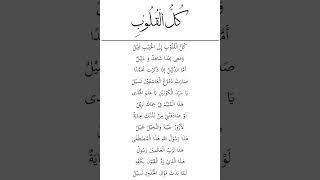 كُلُّ الْقُلُوْبِ
كُلُّ الْقُلُوْبِ إِلَى الْحَبِيْبِ تَمِيْلُ
وَمَعِيْ بِهٰذَا شَاهِدٌ وَ دَلِيْلُ
أَمَّا الدَّلِيْلُ إِذَا ذَكَرْتَ مُحَمَّدًا
صَارَتْ دُمُوْعُ الْعَاشِقِيْنَ تَسِيْلُ
يَا سَيِّدَ الْكَوْنَيْنِ يَا عَلَمَ الْهُدَى
هٰذَا الْمُتَيَّمُ فِيْ حِمَاكَ نَزِيْلُ
لَوْ صَادَفَتْنِيْ مِنْ لَدُنْكَ عِنَايَةٌ
لَأَزُوْرُ طَيْبَةَ وَالنَّخِيْلُ جَمِيْلُ
هٰذَا رَسُوْلُ اللهِ هٰذَا الْمُصْطَفَى
هٰذَا لِرَبِّ الْعَالَمِيْنَ رَسُوْلُ
هٰذَا الَّذِيْ رَدَّ الْعُيُوْنَ بِكَفِّهِ
لَمَّا بَدَتْ فَوْقَ الْخُدُوْدِ تَسِيْلُ